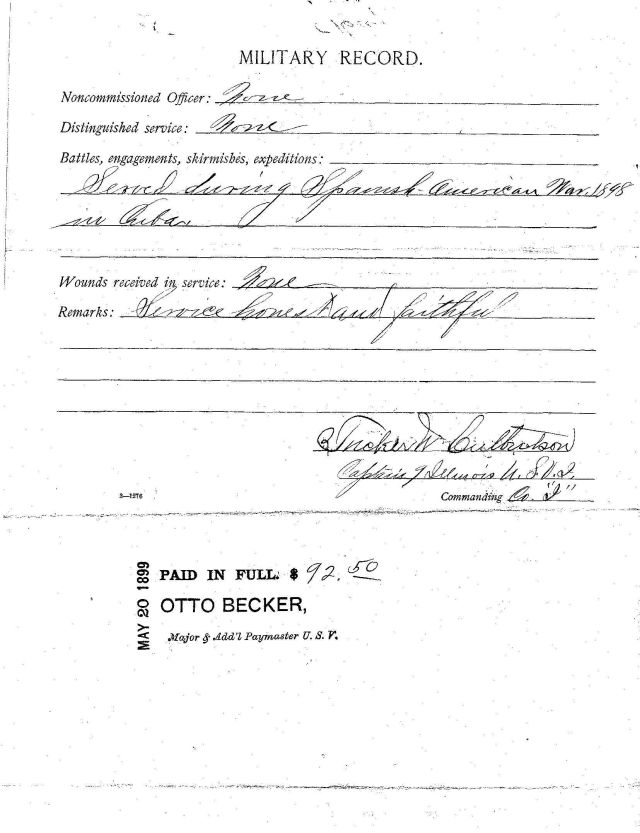 MILITARY RECORD.
Noncommissioned Officer: None
Distinguished service: None
Battles, engagements, skirmishes, expeditions:
Served during Spanish-American War, 1898
in Cuba,
Wounds received in service: None
Remarks: Service honest and faithful
Tucker W Culbertson
Captain 9 Illinois U.S.V.I.
3—1276
Commanding Co. "I"
MAY 20 1899
PAID IN FULL. $ 92.50
OTTO BECKER,
Major & Add'l Paymaster U.S.V.